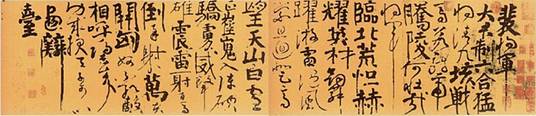 裴將軍
大君制六合猛
將清九垓戰
馬若龍虎
騰陵何壯哉
將軍
臨北荒恒赫
耀英材劍舞
躍游雷隨風
縈且迴登高
望天山白雲
正崔嵬入陣破
驕虜威聲
雄震雷一射百馬
倒再射萬夫
開匈奴不敢敵
相呼歸去來
功成報天子可以
畫麟
臺